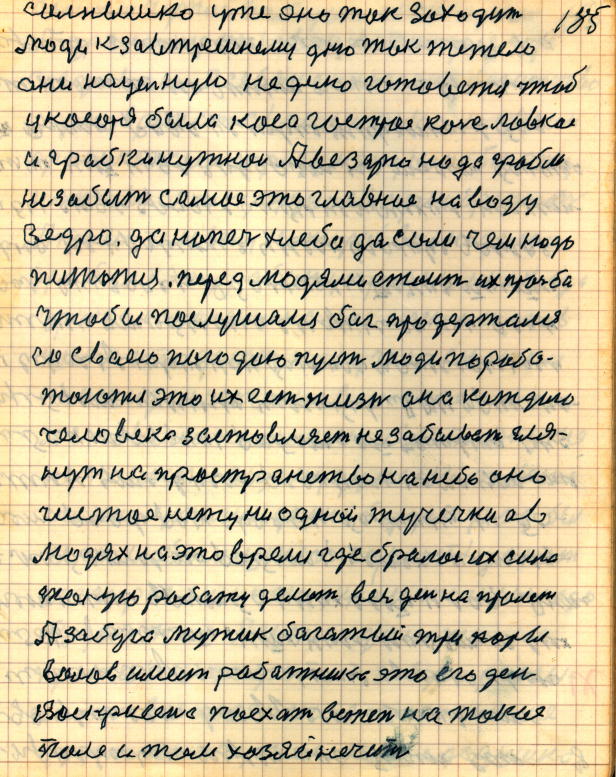 солнышко уже оно так заходит 135
люди к завтрешнему дню так тежело
они нацелную неделю готовется чтоб
у косоря была коса гострое косе ловкае
и грабки нужнои Авезарю нада грабли
незабыт самое это главное на воду
Ведро. да напеч хлеба да соли чем нодо
питатся. перед людями стоит их прозба
чтобы послушался бог продержался
со своею погодаю пуст люди порабо-
таются это их ест жизн она каждого
человека заставляет незабыват гля-
нут на пространство на небо оно
чистое нету ни одной тучечки а в
людях на это время где бралос их сила
такую работу делат вен ден на пролет
А забуга мужик багатый три пары
валов имеет работника это его ден
Воскрисене поехат в степ на такое
поле и там хозяйнечит